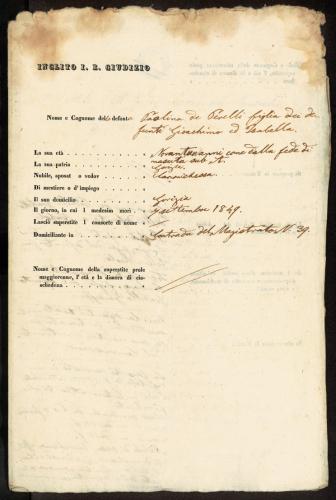 INCLITO I. R. GIUDIZIO
Nome e Cognome della defonta Paolina de Perelli figlia dei de
funti Gioachino ed Isabella.
La sua età Novantaanni come dalla fede di
nascita sub
La sua patria Gorizia
Nobile, sposat o vedov
Di mestiere o d'impiego
Il suo domicilio Gorizia
Il giorno, in cui l medesim morì settembre 1849.
Lasciò superstite l consorte di nome
Domiciliante in Contrada del Magistrato N. 39.
Nome e Cognome della superstite prole
maggiorenne, l'età e la dimora di cia-
scheduna